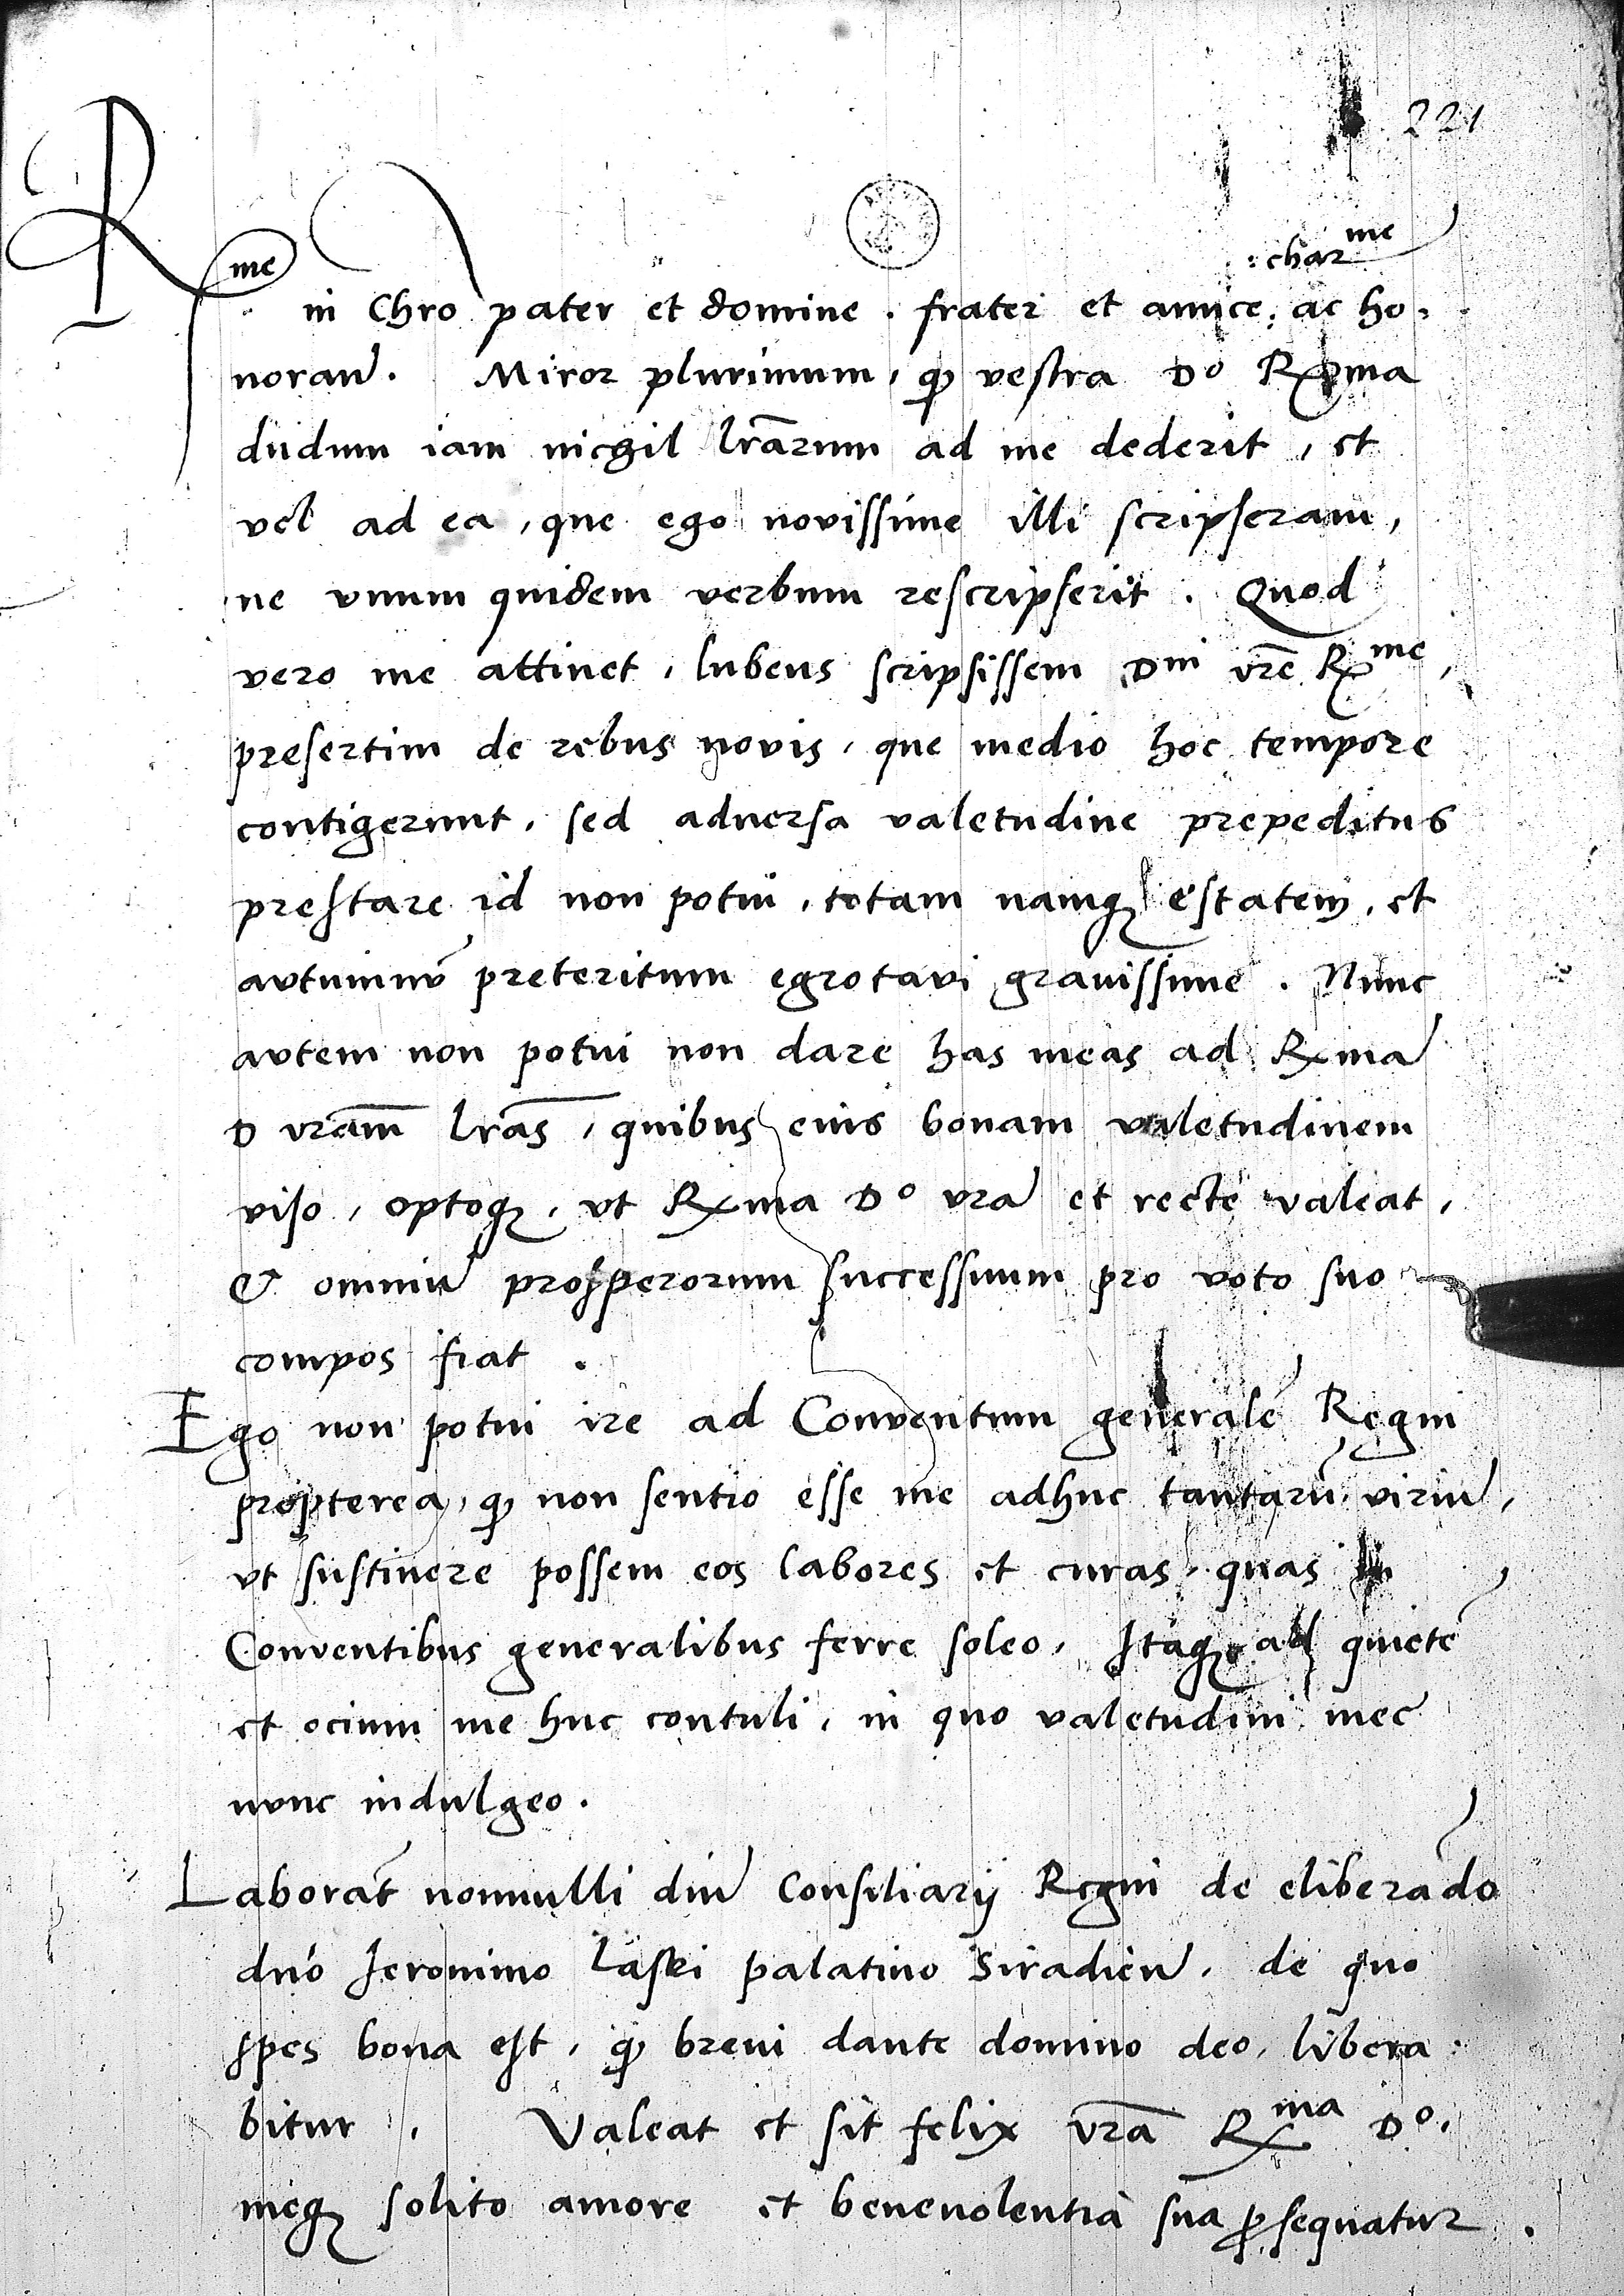 221
: char me
R me in Chro pater et domine . frater et amice : ac ho.
noran̄. Miror plurimum, qꝫ vestra Do Rx̄ma
dudum iam nichil lrārum ad me dederit, et
vel ad ea, que ego novissime illi scripseram,
ne vnum quidem verbum rescripserit. Quod
vero me attinet, lubens scripsissem Dni vrē R me,
presertim de rebus novis, que medio hoc tempore
contigerunt, sed aduersa valetudine prepeditus
prestare id non potui, totam namqꝫ estatem, et
avtumnū preteritum egrotavi grauissime. Nunc
avtem non potui non dare has meas ad Rxma
D vrām lrās, quibus eius bonam valetudinem
viso, optoqꝫ, vt Rxma Do vra et recte valeat,
& omniū prosperorum successuum pro voto suo
compos fiat .
Ego non potui ire ad Conventum generalē Regni
propterea, qꝫ non sentio esse me adhuc tantarū viriū,
vt sustinere possem eos labores et curas, quas in
Conventibus generalibus ferre soleo, Itaqꝫ ad quietē
et ocium me huc contuli, in quo valetudini mee
nvnc indulgeo.
Laborāt nonnulli dni Consiliarij Regni de eliberādo
dnō Jeronimo Laski palatino Siradien̄, de quo
spes bona est, qꝫ breui dante domino deo, libera
bitur . Valeat et sit felix vrā R ma Do.
meqꝫ solito amore et beneuolentia sua ꝓsequatur .